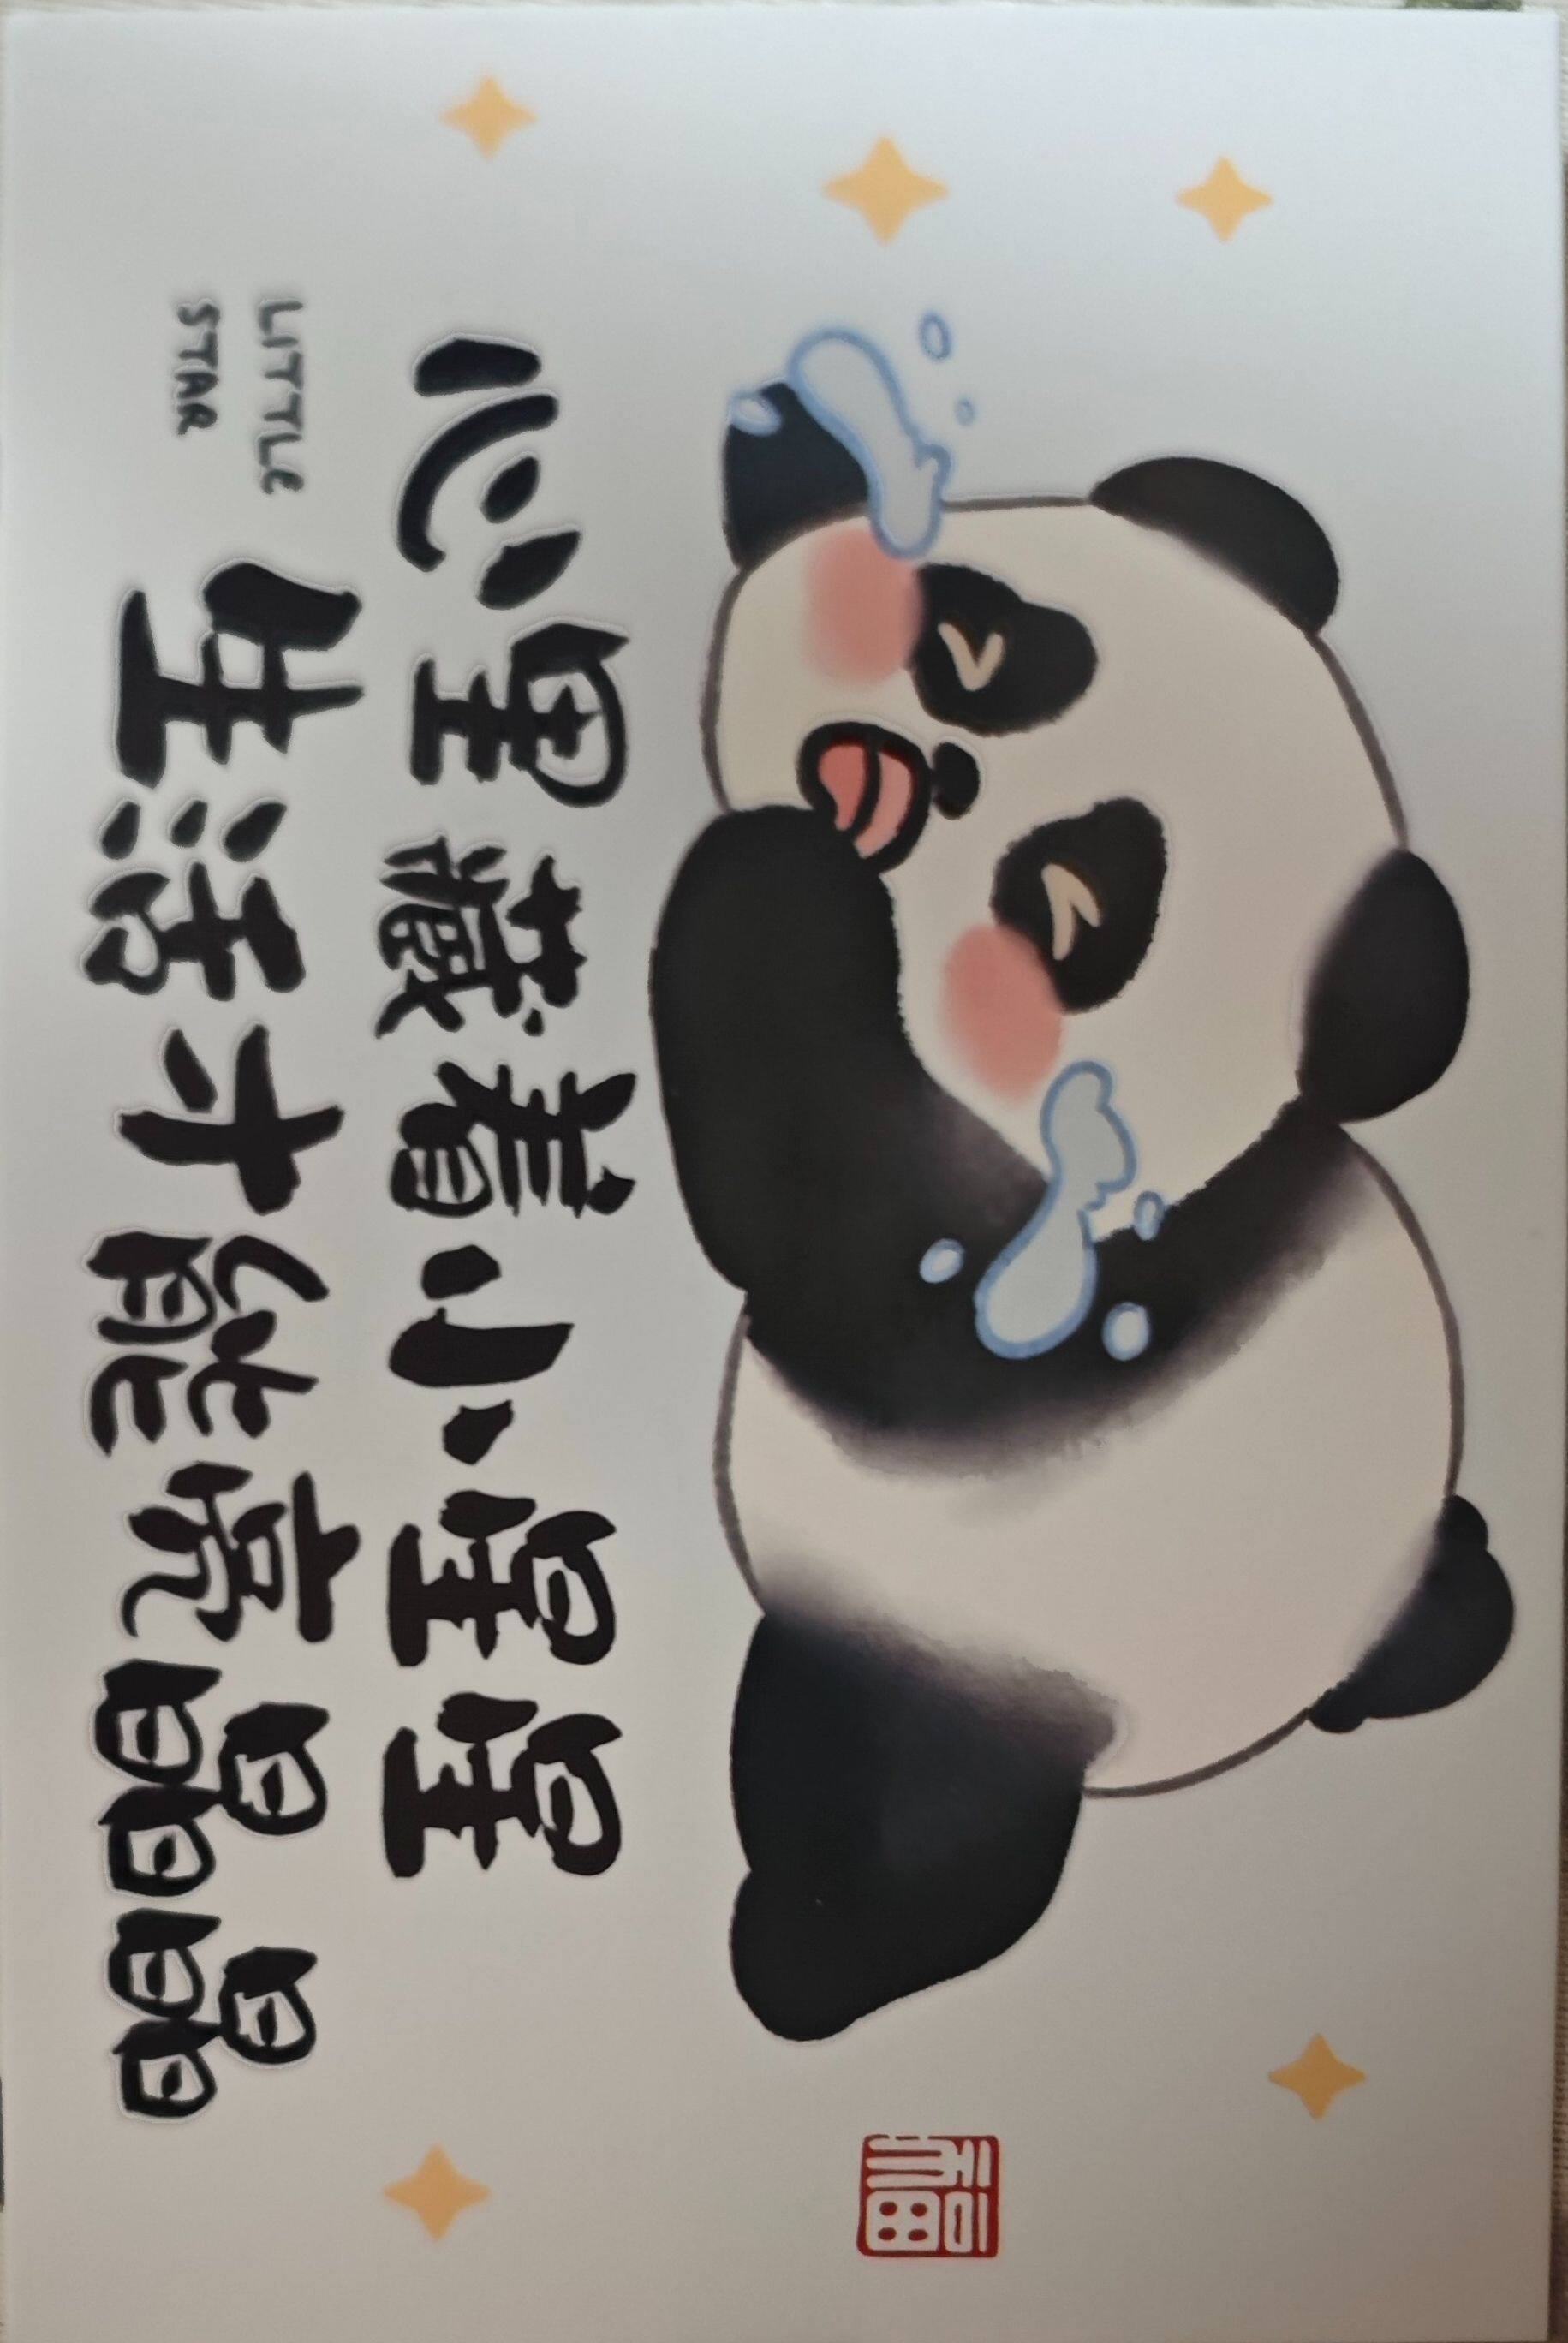 心里藏着小星星
生活才能亮晶晶
LITTLE
STAR
福